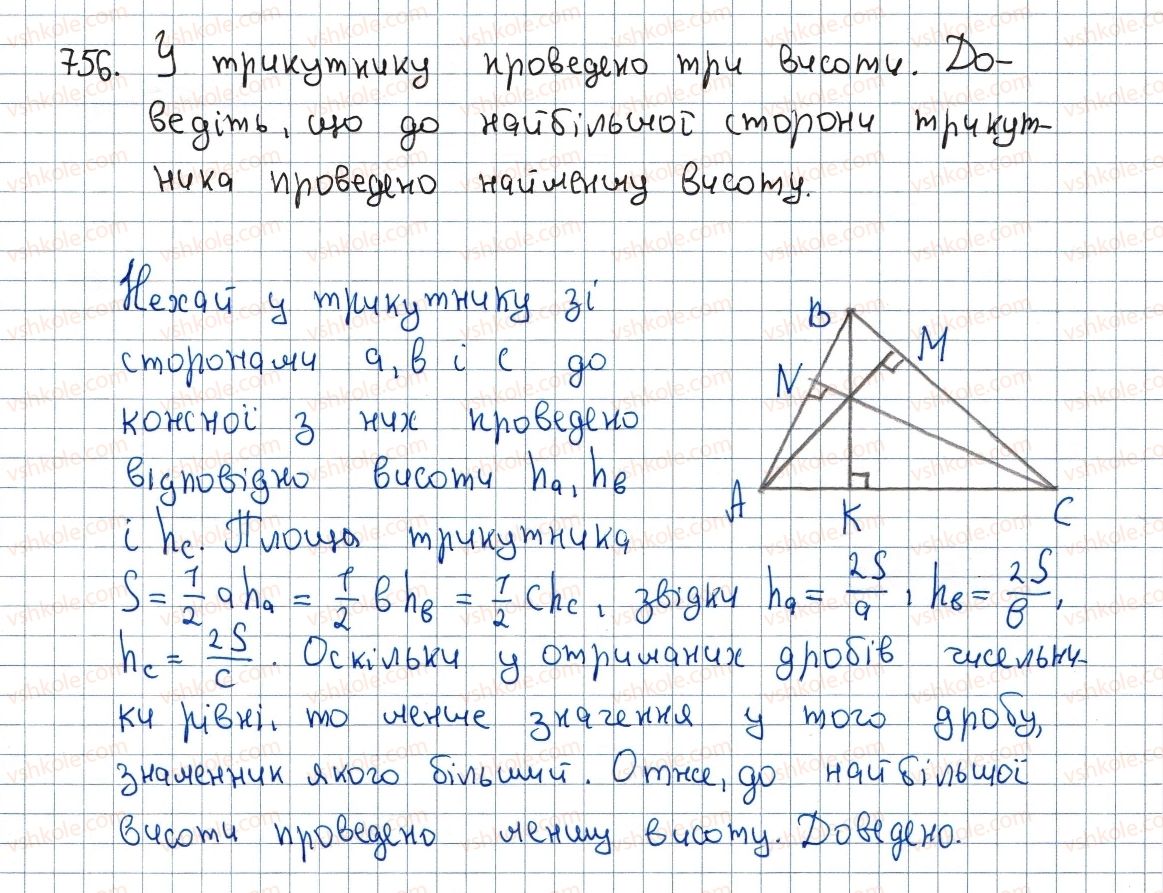 756. У трикутнику проведено три висоти. До-
ведіть, що до найбільшої сторони трикут-
ника проведено найменшу висоту.
Нехай у трикутнику зі
сторонами a, b і c до
кожної з них проведено
відповідно висоти hₐ, h_b
і h_c. Площа трикутника
S = 1/2 ahₐ = 1/2 bh_b = 1/2 ch_c, звідки hₐ = 2S/a, h_b = 2S/b,
h_c = 2S/c. Оскільки у отриманих дробів чисельни-
ки рівні, то менше значення у того дробу,
знаменник якого більший. Отже, до найбільшої
висоти проведено меншу висоту. Доведено.
B
M
N
A
K
C
vshkole.com